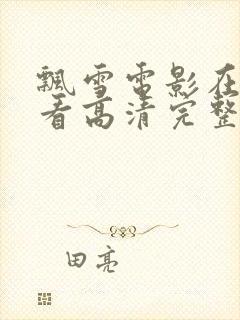 飘雪电影在
看高清完整
田亮